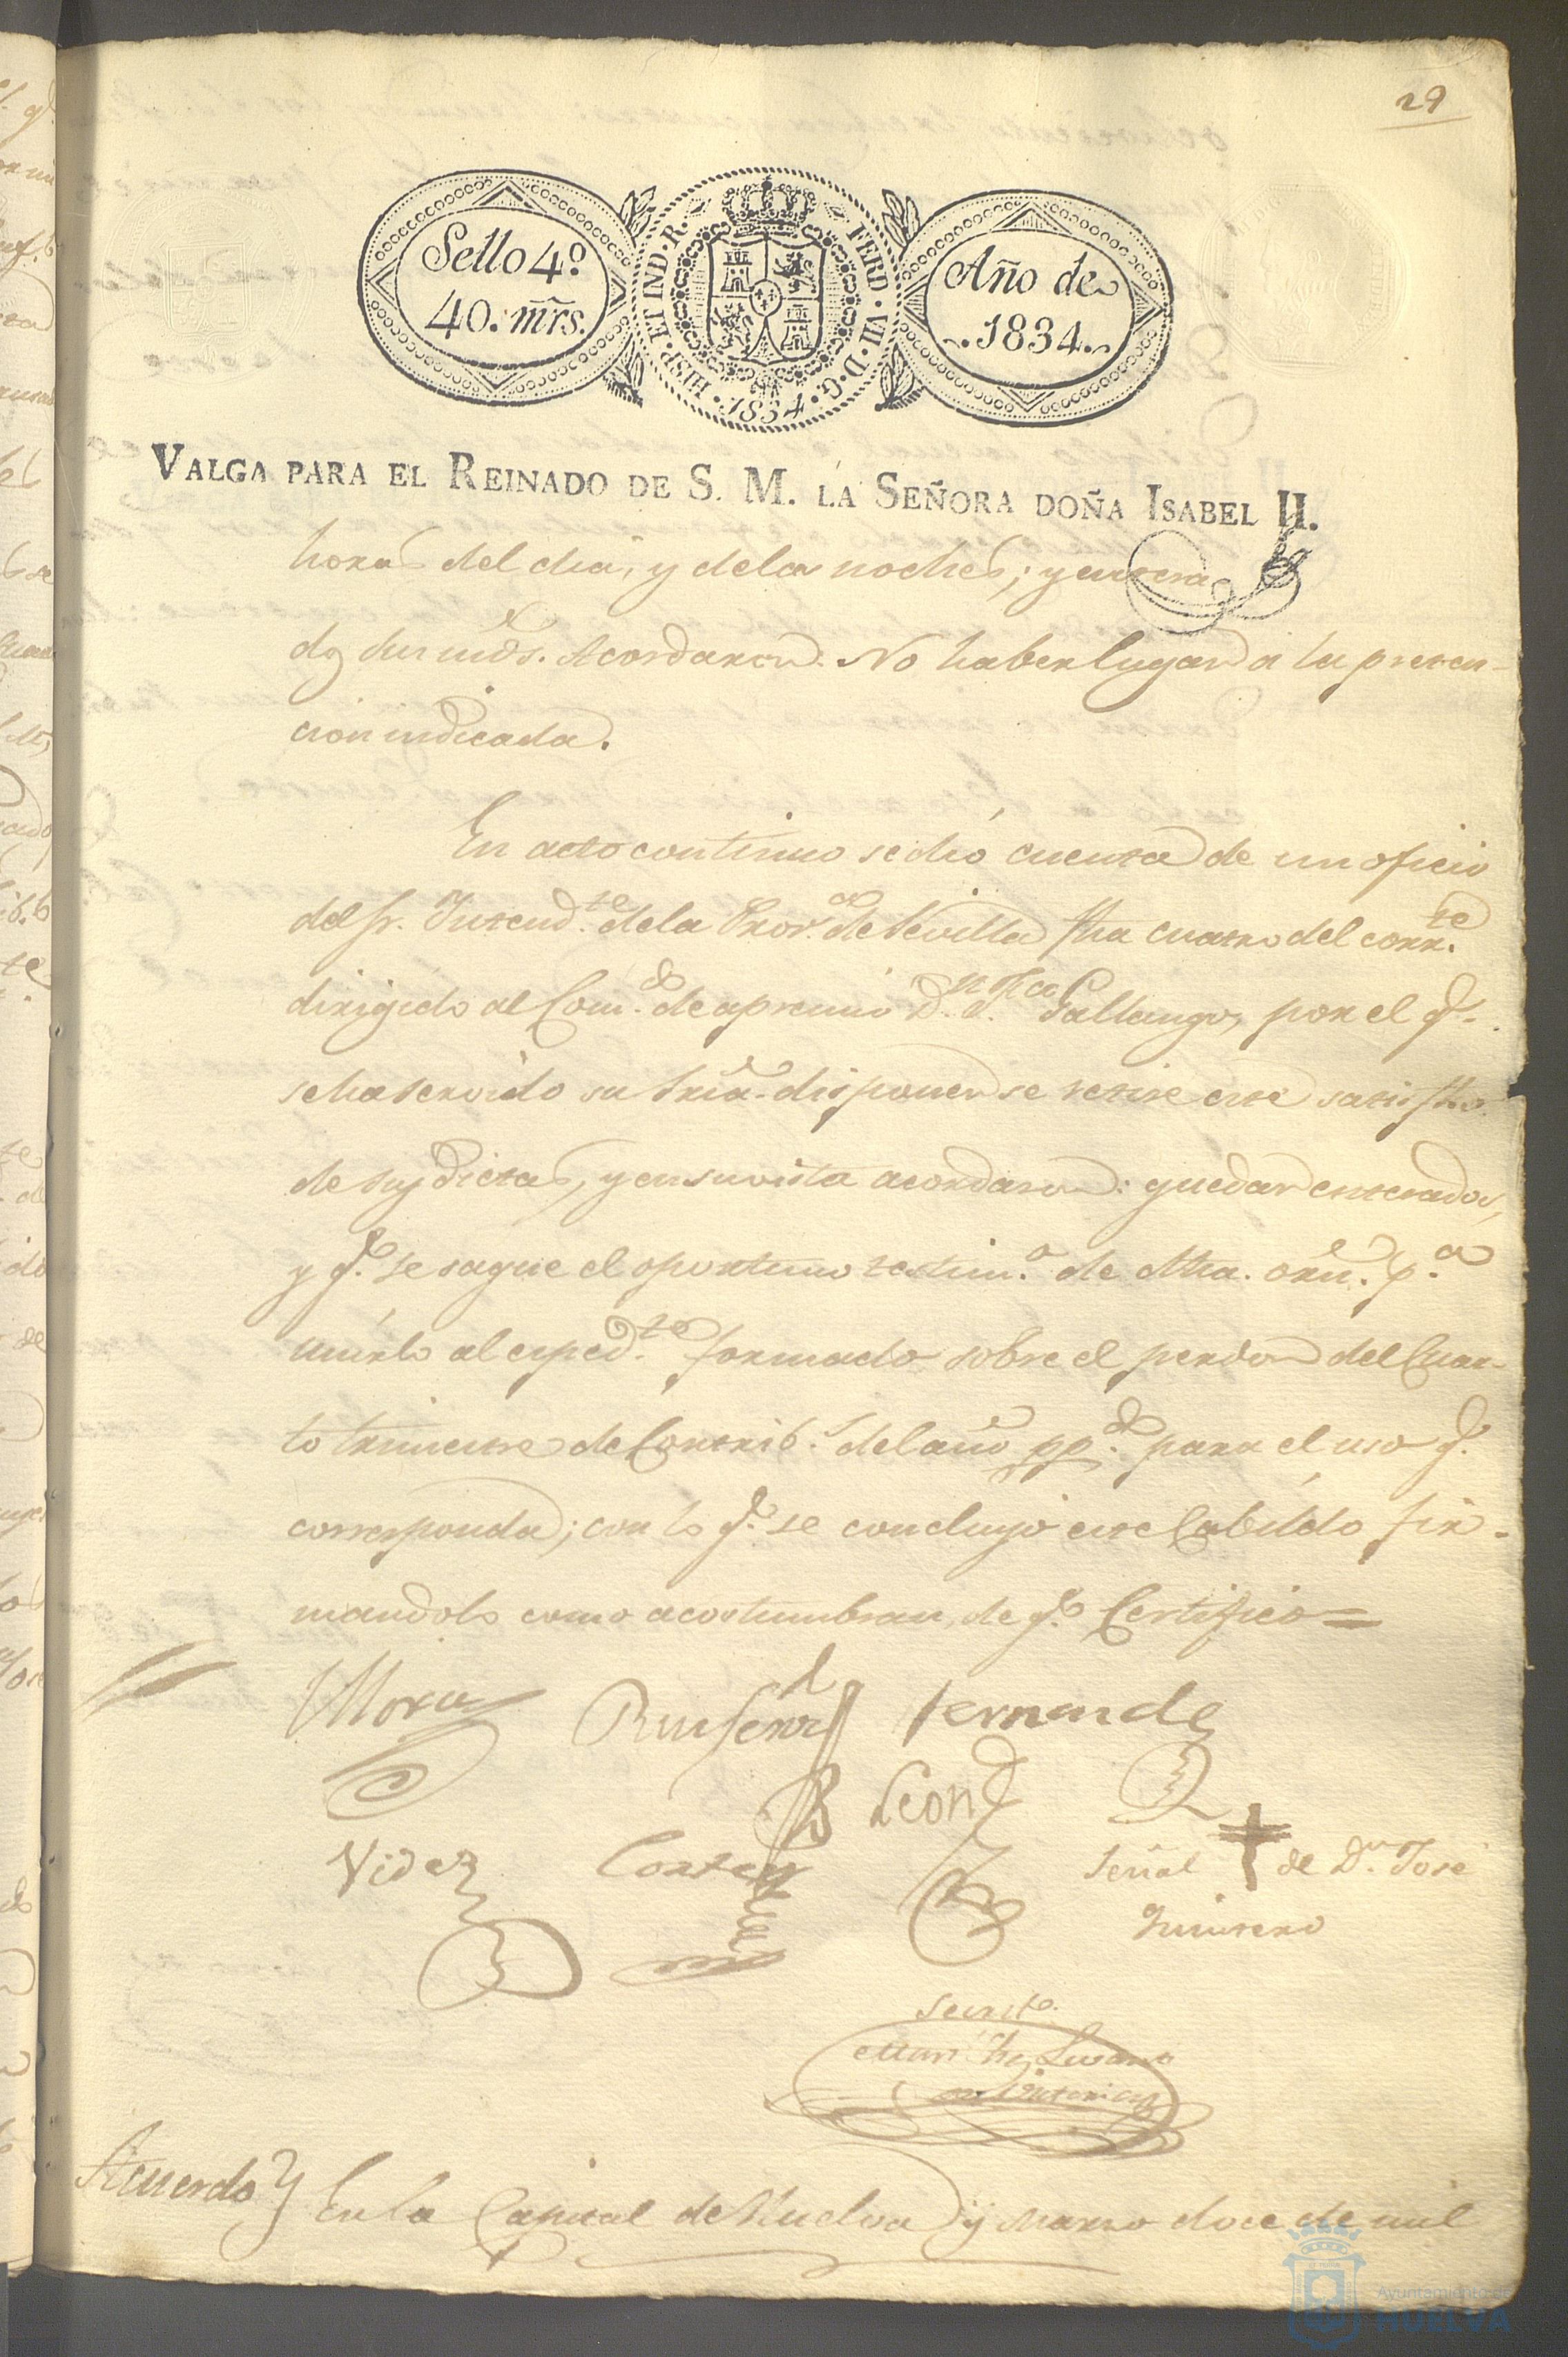 29
Sello 4º
40. mrs.
HISP. ET IND. R. FERD. VII. D. G. 1834.
Año de
1834.
VALGA PARA EL REINADO DE S. M. LA SEÑORA DOÑA ISABEL II.
horas del dia, y de la noches; y entera
dos sus mds. Acordaron: No haber lugar a la preten-
cion indicada.
En acto continuo se dió cuenta de un oficio
del Sr. Intend.te de la Prov.a de Sevilla fha cuatro del corr.te
dirigido al Com.do de apremio D.n Gallango, por el q.e
se ha servido su Sria. disponer se retire este satisfho.
de sus dietas, y en su vista acordaron: quedar enterados,
y q.e se saque el oportuno testim.o de dtha. orn. p.a
unirlo al esped.te formado sobre el perdon del Cuar-
to trimestre de Contrib.s del año pp.do para el uso q.e
corresponda; con lo q.e se concluyó este Cabildo fir-
mandolo como acostumbran, de q.e Certifico=
Mora Ruiseñor Fernandez
Leon
Videz Cortes Señal de D.n José
Quintero
Secret.o
Acuerdo En la Capital de Huelva y Marzo doce de mil
Ayuntamiento de
HUELVA